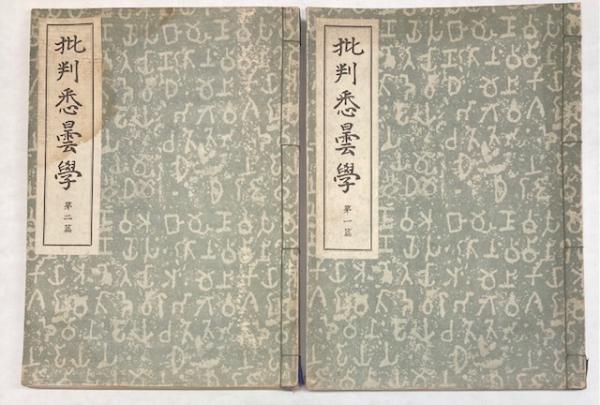 批判悉曇學
第一篇
批判悉曇學
第二篇